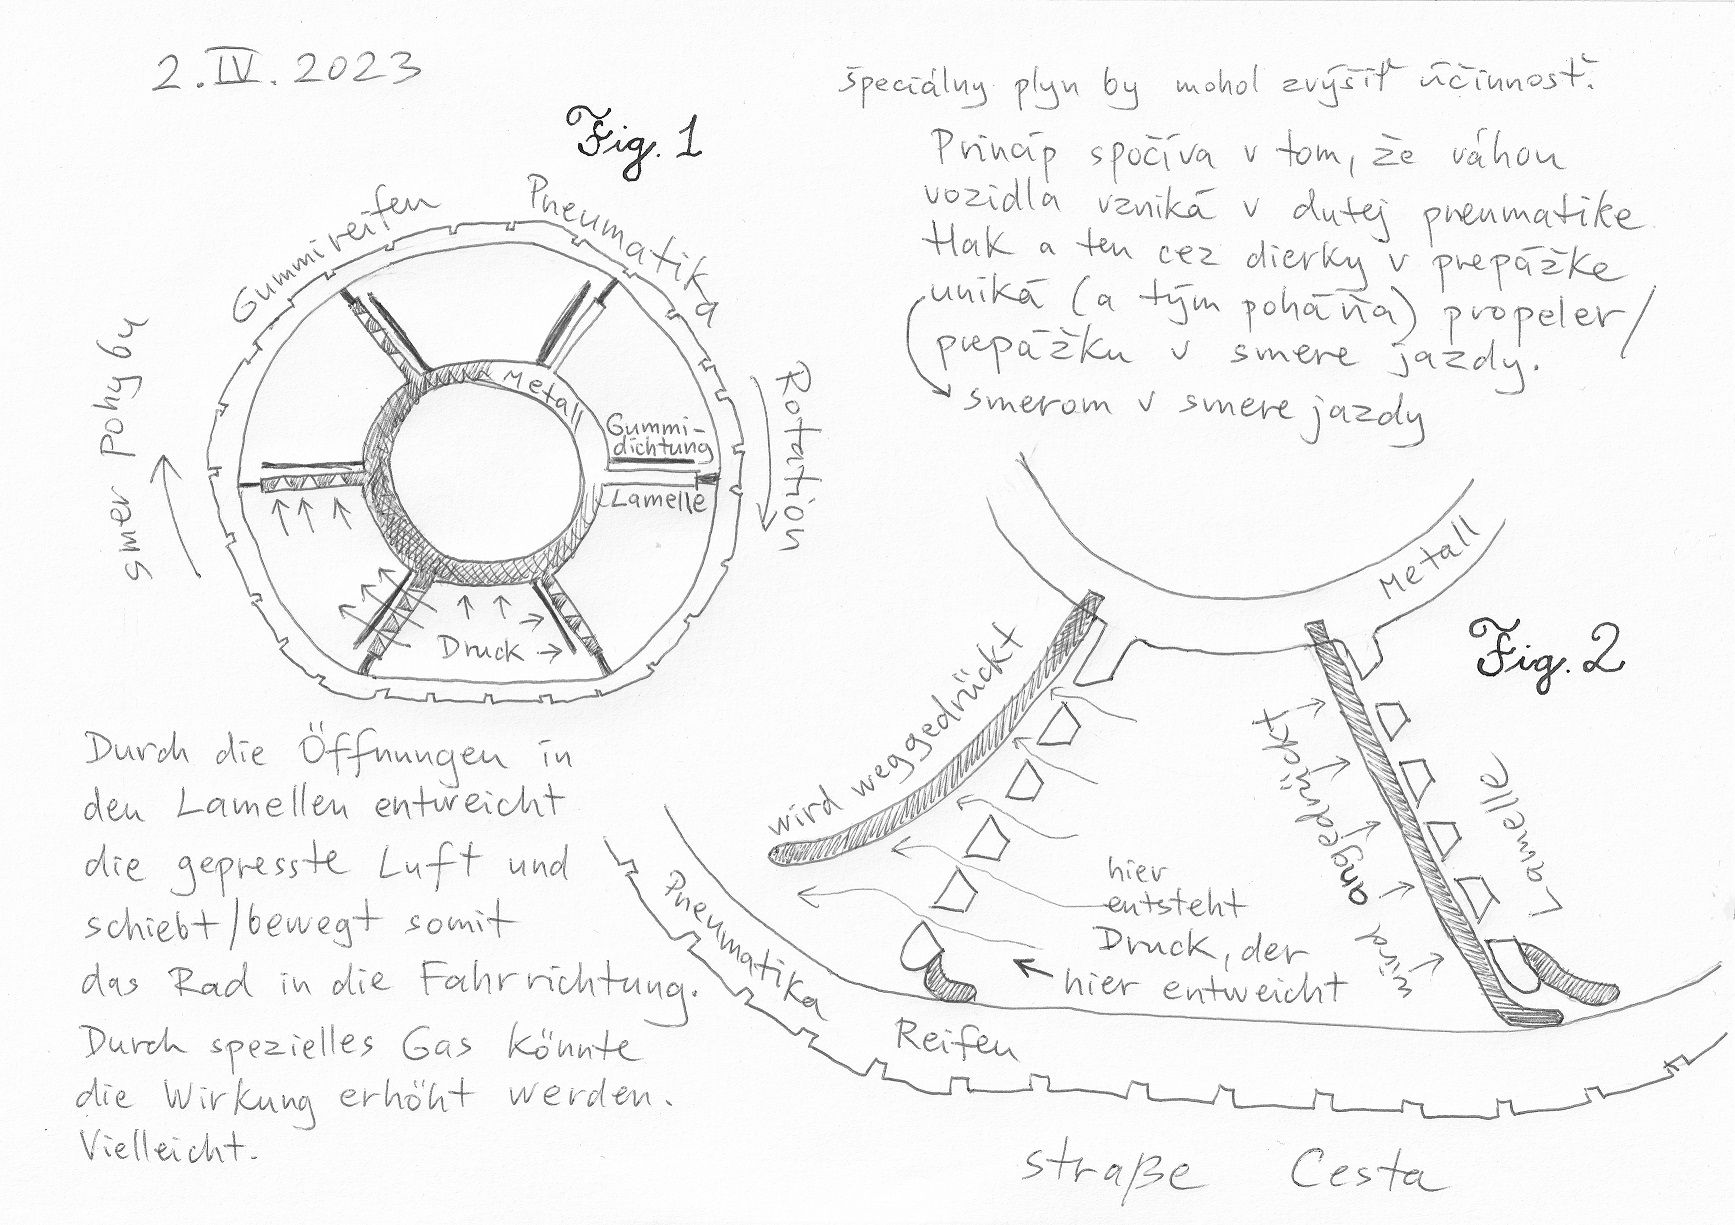 2. IV. 2023
Fig. 1
Gummireifen
Pneumatika
smer pohybu
Rotation
Metall
Gummi-
dichtung
Lamelle
Druck
Durch die Öffnungen in
den Lamellen entweicht
die gepresste Luft und
schiebt/bewegt somit
das Rad in die Fahrrichtung.
Durch spezielles Gas könnte
die Wirkung erhöht werden.
Vielleicht.
špeciálny plyn by mohol zvýšiť účinnosť.
Princíp spočíva v tom, že váhou
vozidla vzniká v dutej pneumatike
tlak a ten cez dierky v prepážke
uniká (a tým poháňa) propeler/
prepážku v smere jazdy.
smerom v smere jazdy
Fig. 2
Metall
wird weggedrückt
wird angedrückt
Lamelle
hier
entsteht
Druck, der
hier entweicht
Pneumatika
Reifen
straße Cesta